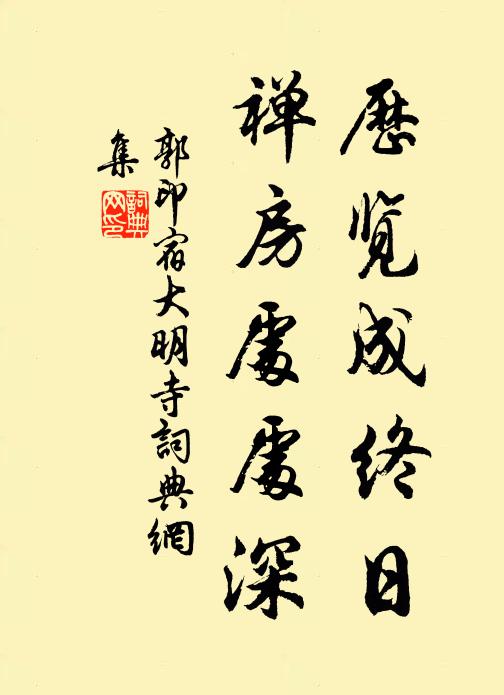 歷覽成終日
禪房處處深
郭印宿大明寺詞典網
集
詞典網印